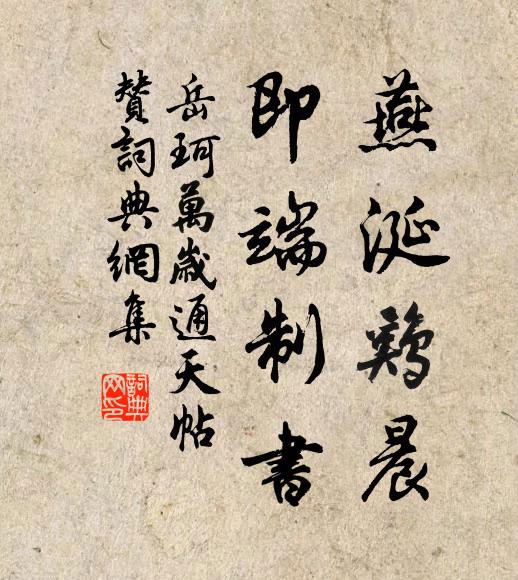 燕涎鷄晨
即端制書
岳珂萬歲通天帖
贊詞典網集
詞典网印